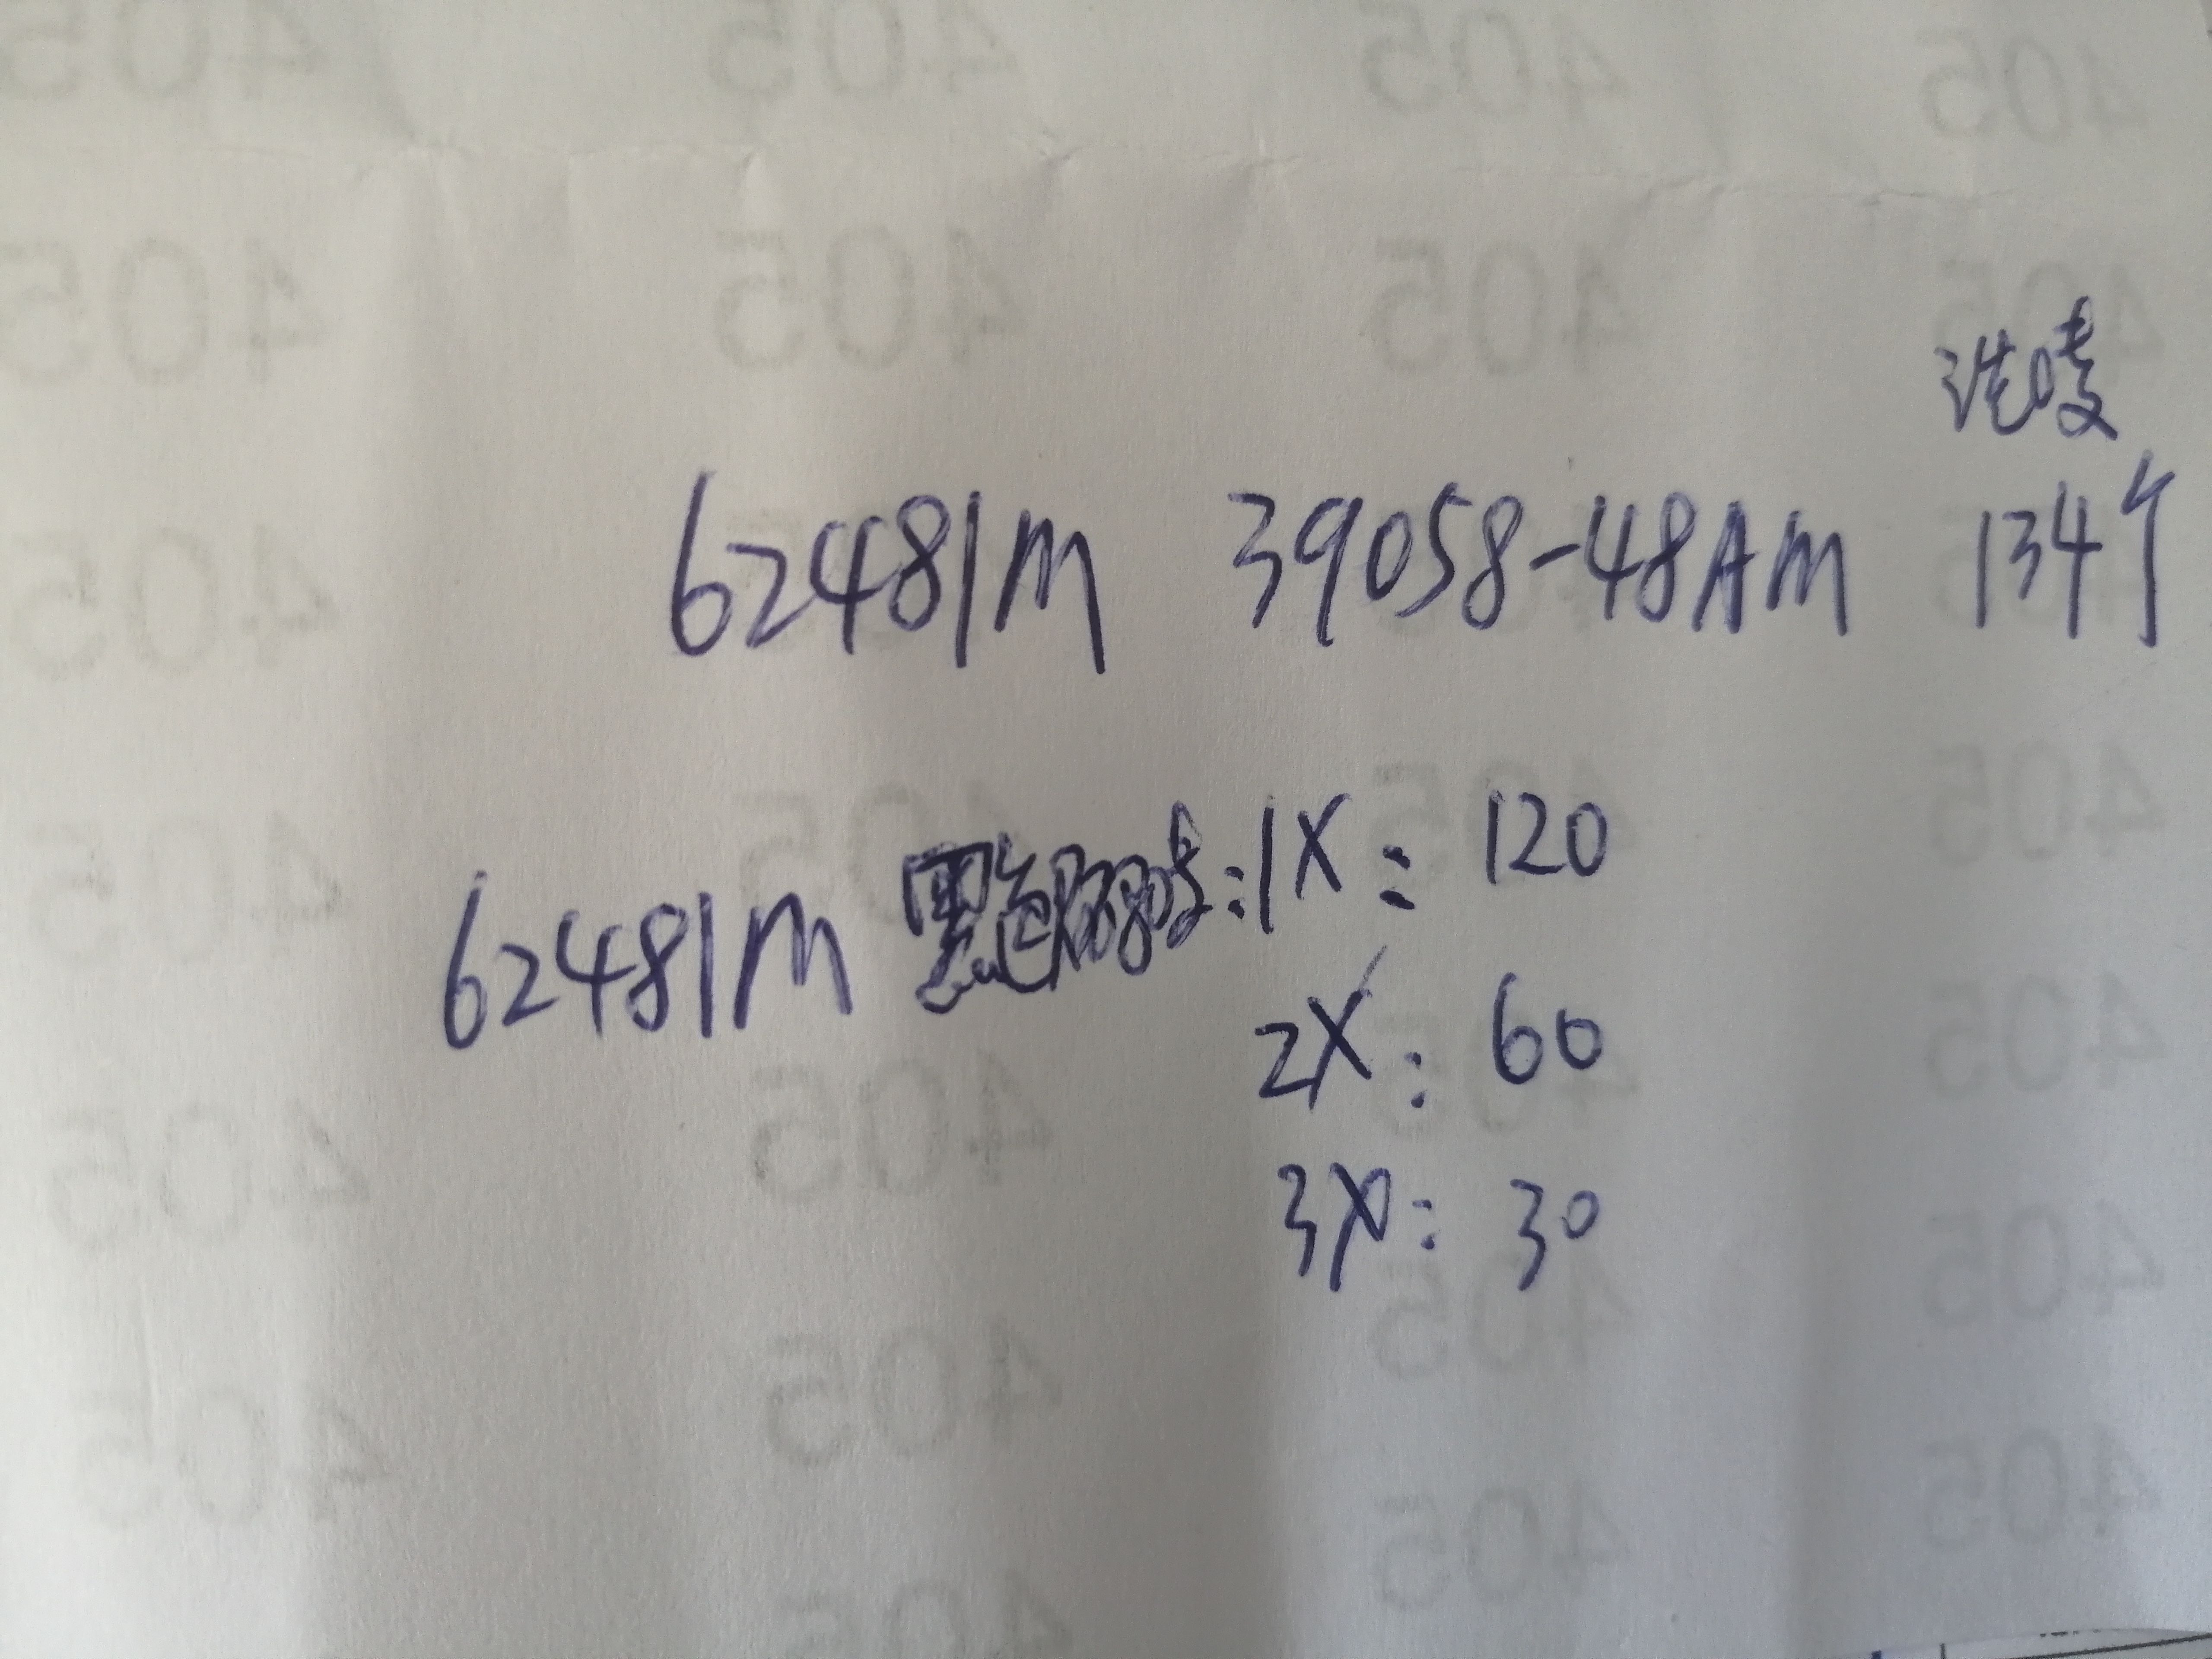 洗唛
62481M 39058-48AM 134个
62481M 黑色 :1X: 120
2X: 60
3X: 30